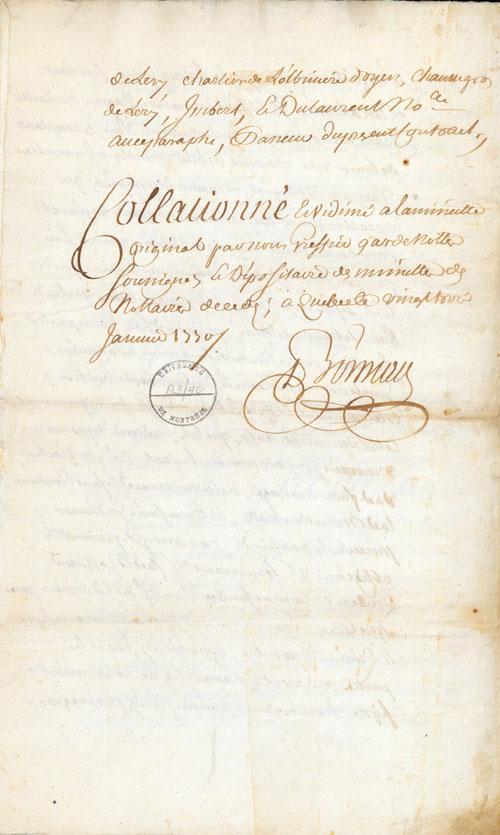 de Lery chartier de Lotbiniere doyen, Chaussegros
de Lery, Imbert, & Dulaurent No.re
avec paraphe, Daneu du present Contract,
Collationné & vidimé a la minutte
original par nous greffier gardenotte
soussigné & Dépositaire des minuttes des
Nottaires decedés; à Quebec le vingt trois
Janvier 1750,
Boisseau
UNIVERSITÉ
A3/40
DE MONTRÉAL